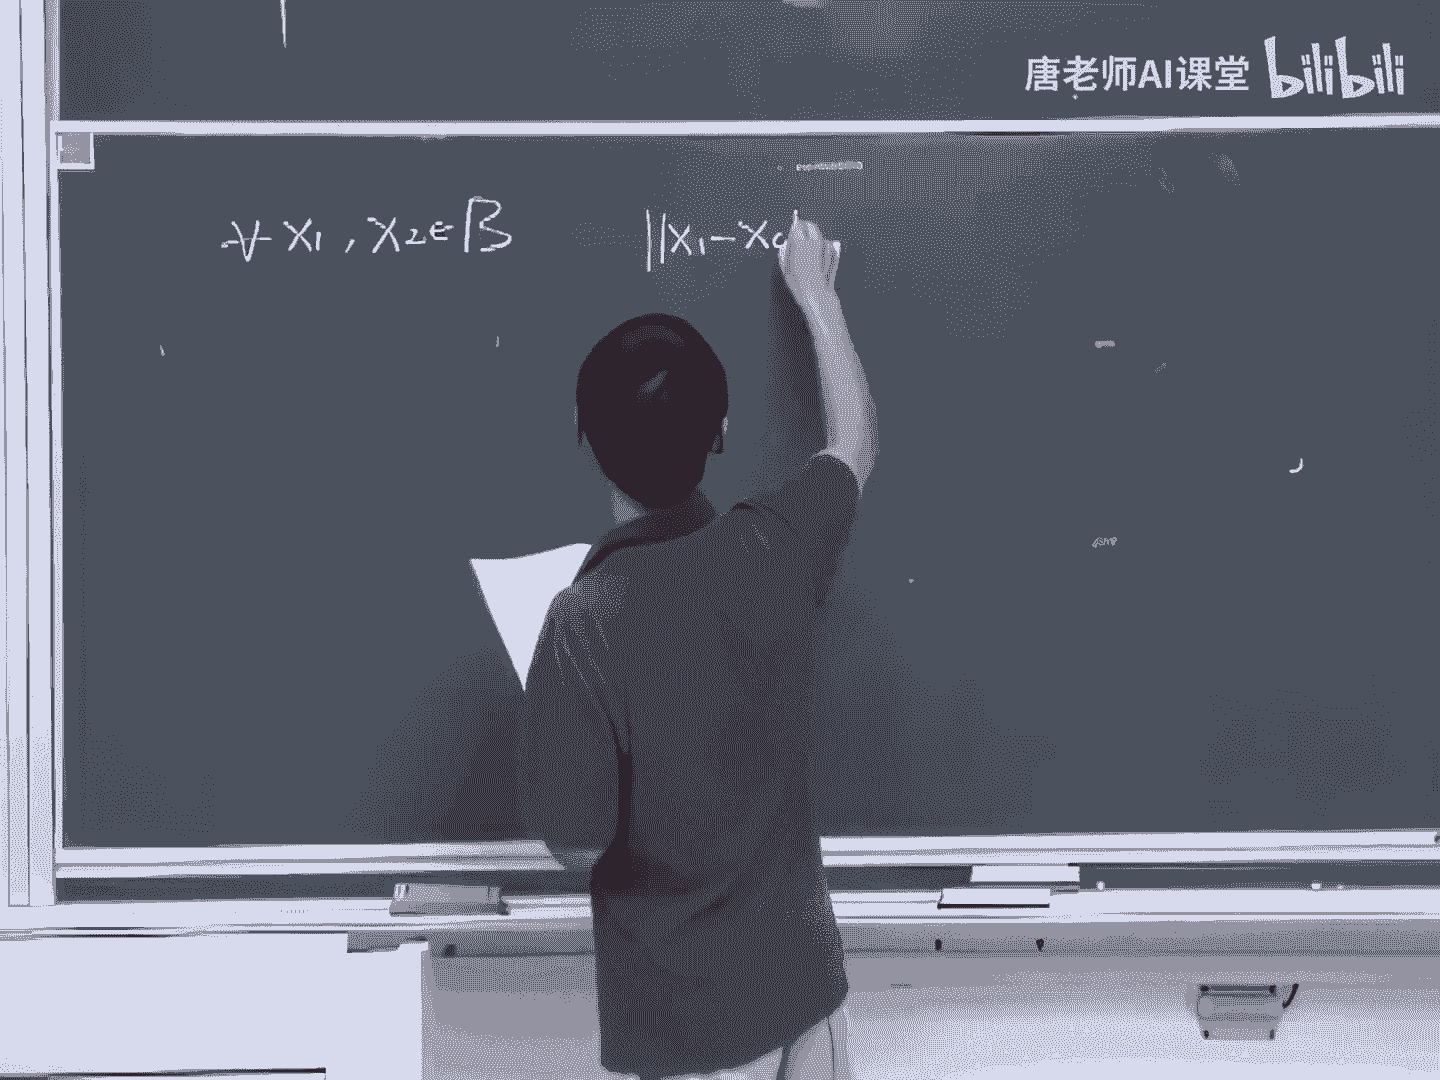 唐老师AI课堂 bilibili
∀ x₁, x₂ ∈ B ||x₁ - x₀